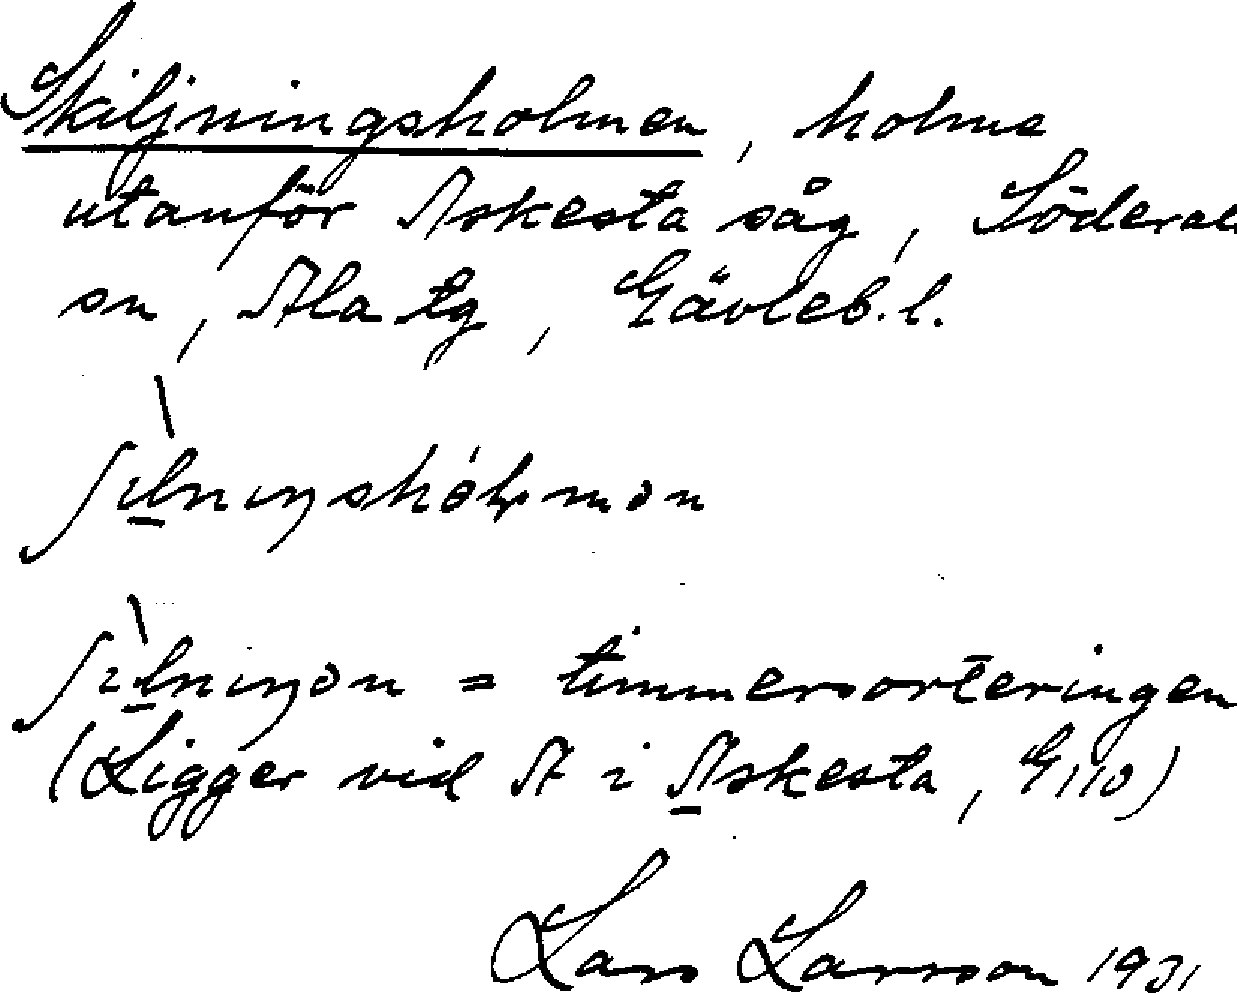 Skiljningsholmen, holme
utanför Askesta såg, Söderala
sn, Ala tg, Gävleb. l.
ʃìl̠niŋshólmən
ʃìl̠niŋən = timmersorteringen
(Ligger vid A i A̲skesta, G110)
Lars Larsson 1931